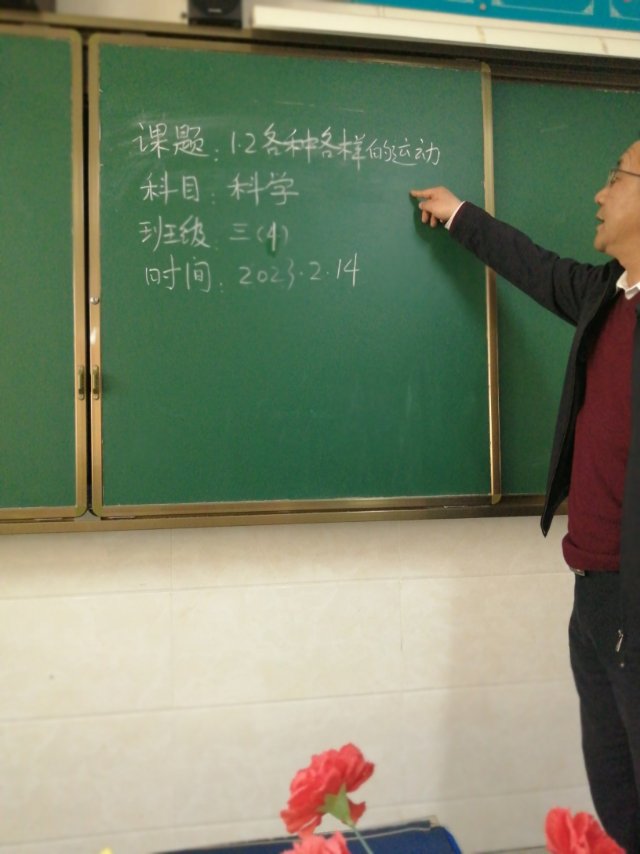 课题：1.2各种各样的运动
科目：科学
班级 三(4)
时间：2023.2.14